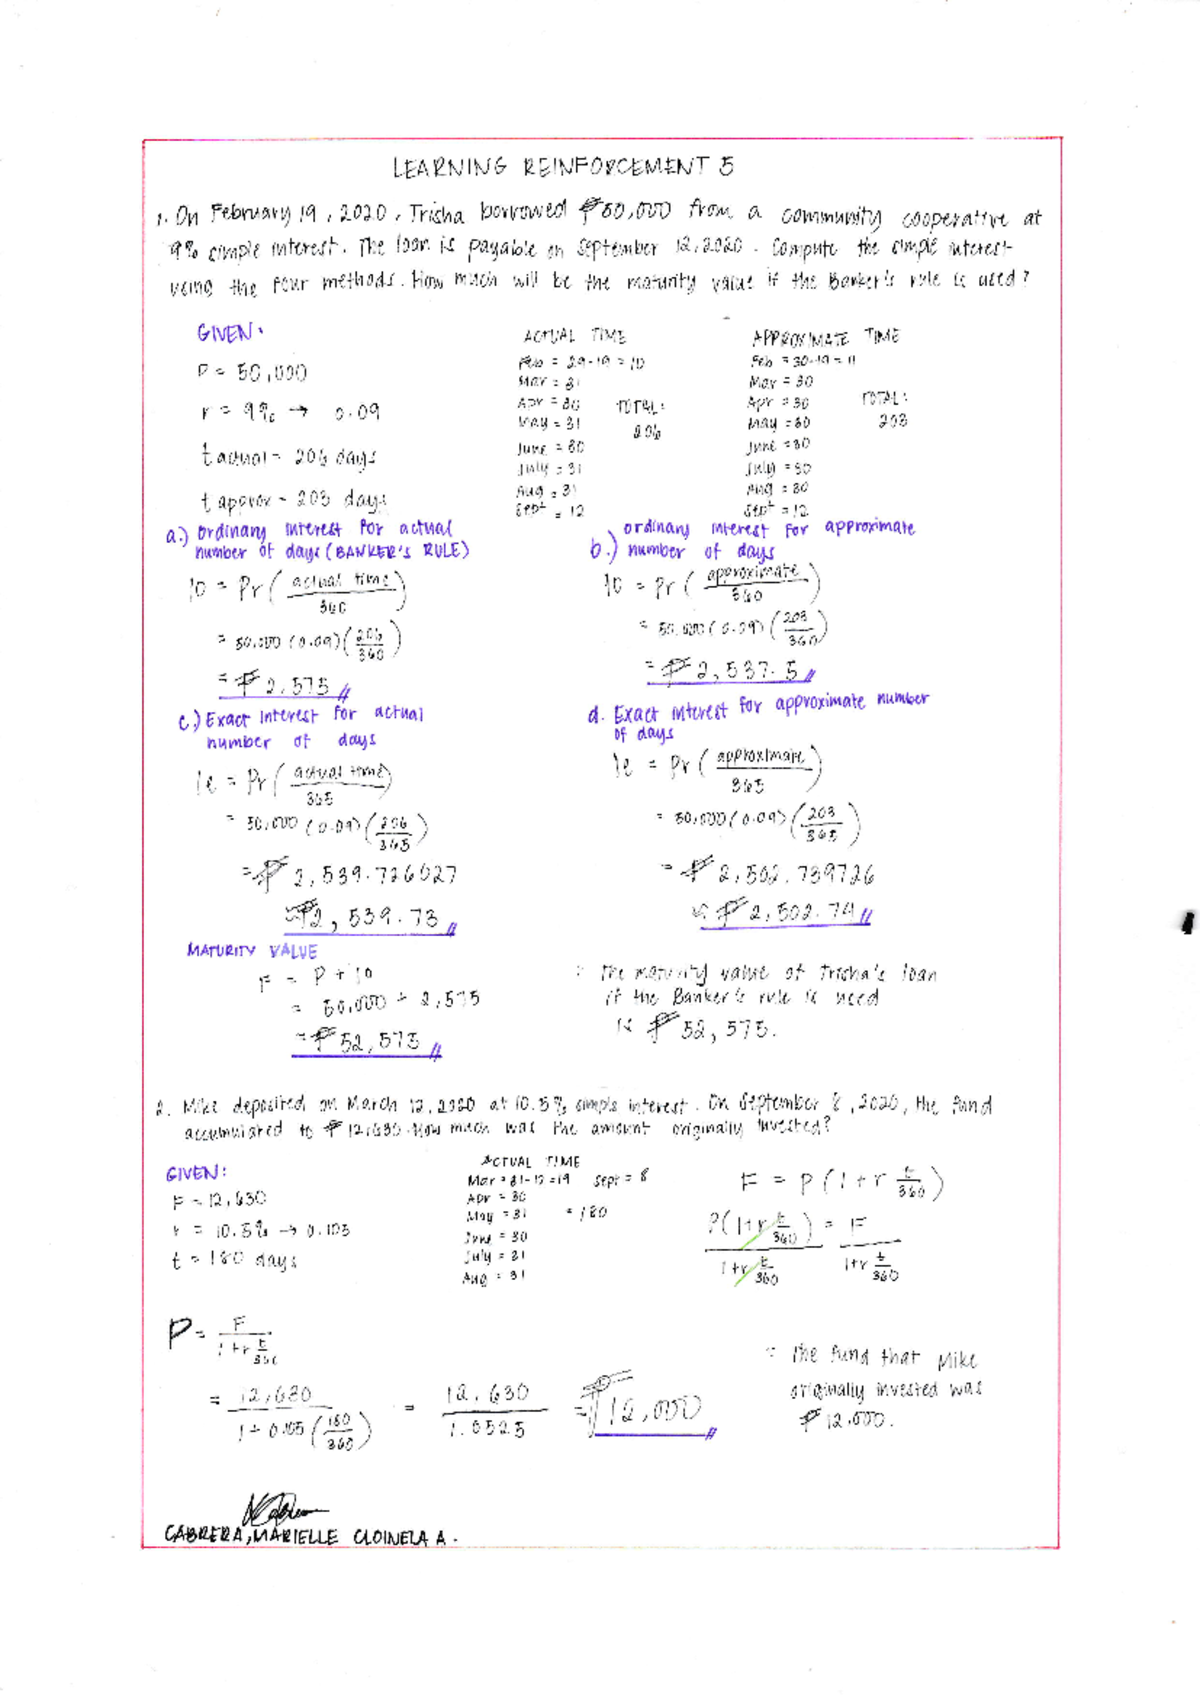 LEARNING REINFORCEMENT 5
1. On February 19, 2020, Trisha borrowed ₱50,000 from a community cooperative at
9% simple interest. The loan is payable on September 12, 2020. Compute the simple interest
using the four methods. How much will be the maturity value if the Banker's rule is used?
GIVEN:
P = 50,000
r = 9% → 0.09
t actual = 206 days
t approx = 203 days
ACTUAL TIME
Feb = 29-19 = 10
Mar = 31
Apr = 30
May = 31
June = 30
July = 31
Aug = 31
Sept = 12
TOTAL:
206
APPROXIMATE TIME
Feb = 30-19 = 11
Mar = 30
Apr = 30
May = 30
June = 30
July = 30
Aug = 30
Sept = 12
TOTAL:
203
a.) Ordinary interest for actual
number of days (BANKER'S RULE)
Io = Pr (actual time / 360)
= 50,000 (0.09) (206/360)
= ₱2,575
b.) ordinary interest for approximate
number of days
Io = Pr (approximate / 360)
= 50,000 (0.09) (203/360)
= ₱2,537.5
c.) Exact interest for actual
number of days
Ie = Pr (actual time / 365)
= 50,000 (0.09) (206/365)
= ₱2,539.726027
≈ ₱2,539.73
d. Exact interest for approximate number
of days
Ie = Pr (approximate / 365)
= 50,000 (0.09) (203/365)
= ₱2,502.739726
≈ ₱2,502.74
MATURITY VALUE
F = P + Io
= 50,000 + 2,575
= ₱52,575
∴ The maturity value of Trisha's loan
if the Banker's rule is used
is ₱52,575.
2. Mike deposited on March 12, 2020 at 10.5% simple interest. On September 8, 2020, the fund
accumulated to ₱12,630. How much was the amount originally invested?
GIVEN:
F = 12,630
r = 10.5% → 0.105
t = 180 days
ACTUAL TIME
Mar = 31-12 = 19
Apr = 30
May = 31
June = 30
July = 31
Aug = 31
Sept = 8
= 180
F = P (1 + r t/360)
P(1 + r t/360) / 1 + r t/360 = F / 1 + r t/360
P = F / 1 + r t/360
= 12,630 / 1 + 0.105 (180/360) = 12,630 / 1.0525 = ₱12,000
∴ The fund that Mike
originally invested was
₱12,000.
CABRERA, MARIELLE CLOINELA A.